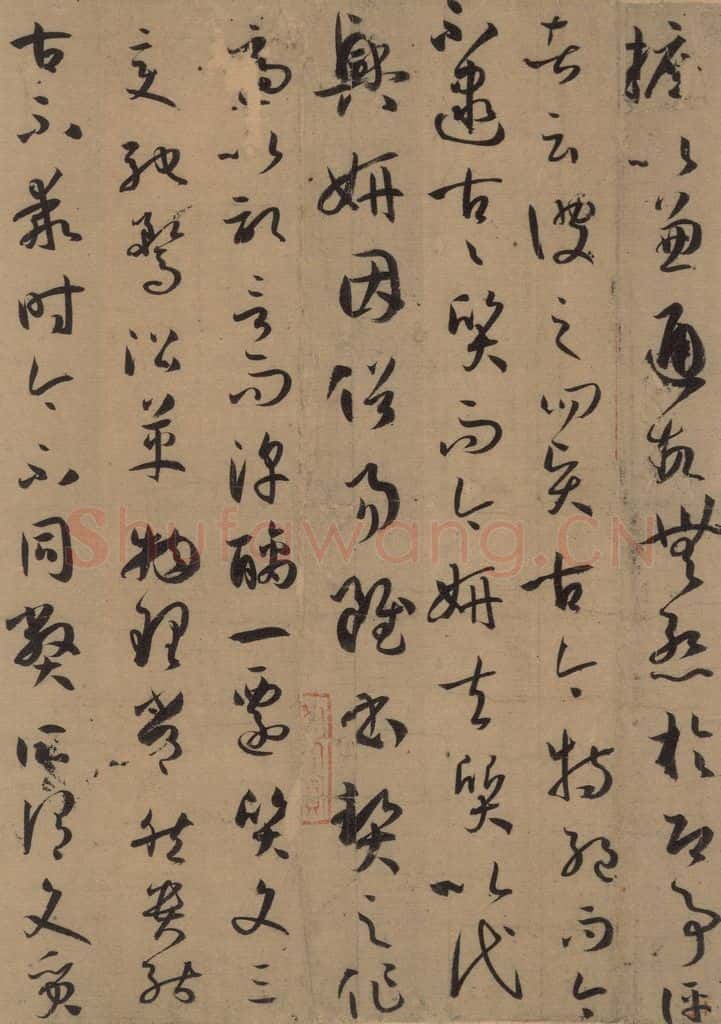 摭以兼通故無慙於即事評
者云彼之四賢古今特絕而今
不逮古〻質而今妍夫質以代
興妍因俗易雖書契之作
適以記言而淳醨一遷質文三
變馳騖沿革物理常然貴能
古不乖時今不同弊所謂文質
Shufawang.CN